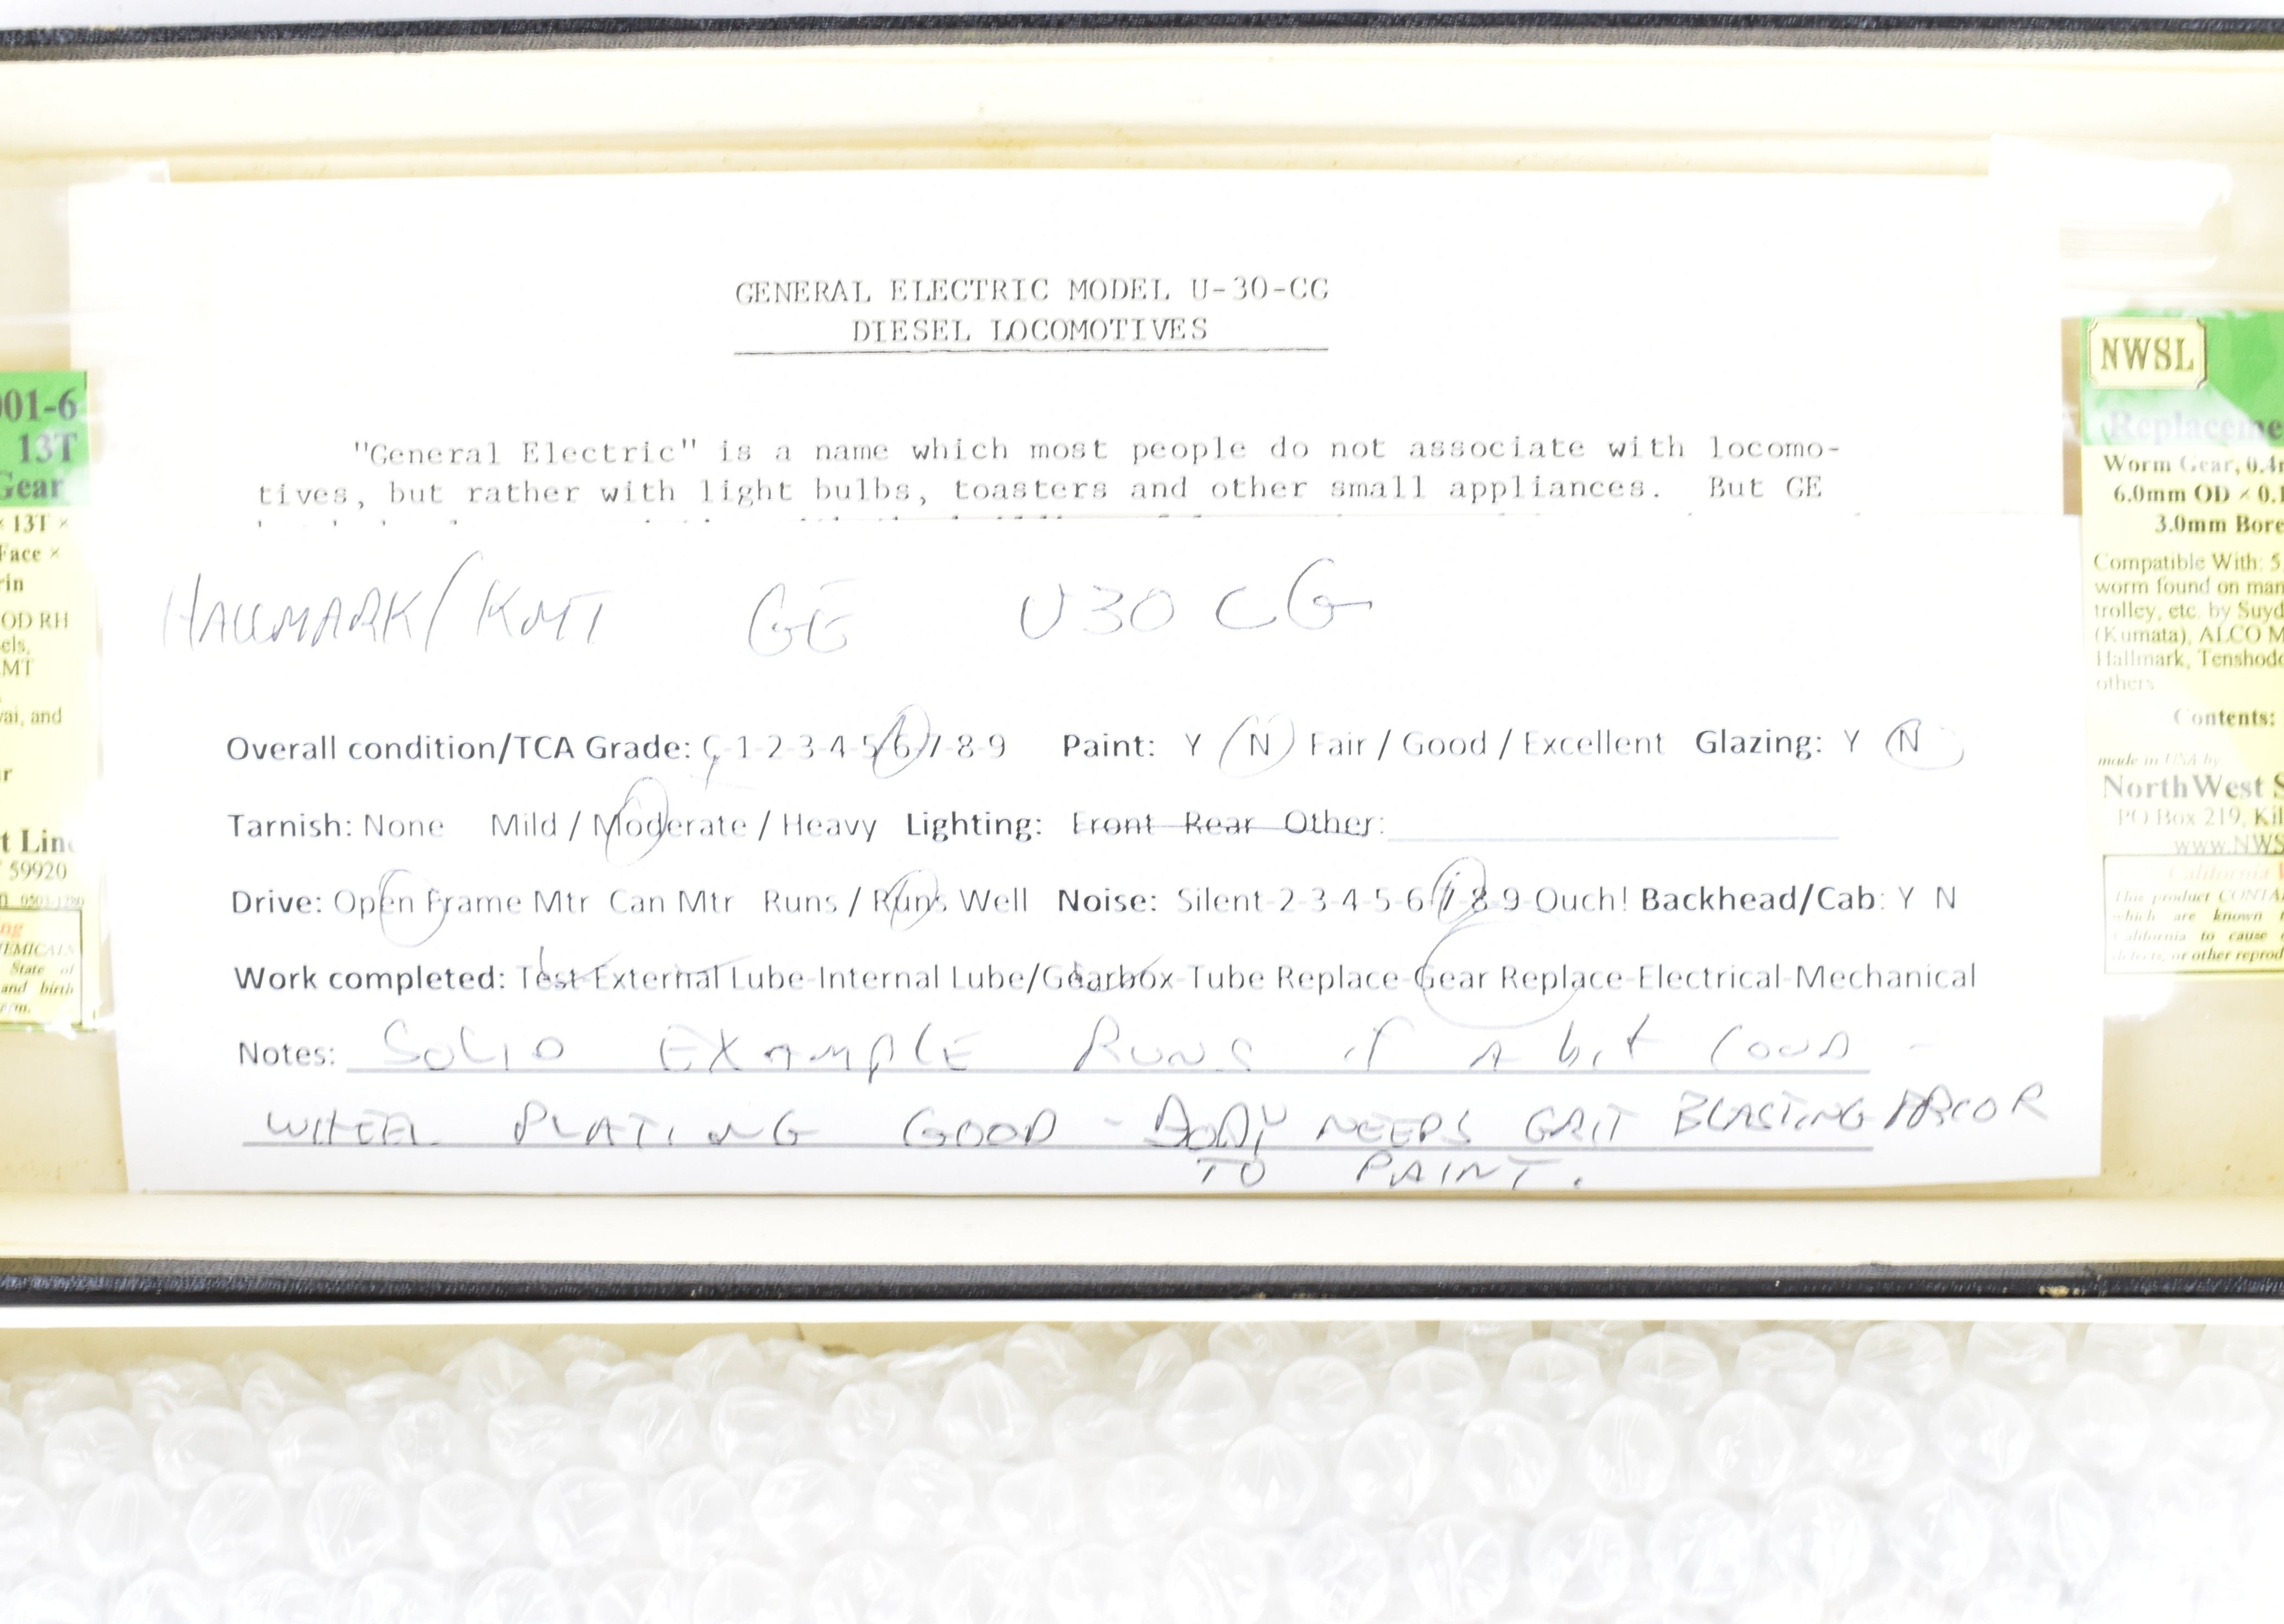 GENERAL ELECTRIC MODEL U-30-CG
DIESEL LOCOMOTIVES
"General Electric" is a name which most people do not associate with locomo-
tives, but rather with light bulbs, toasters and other small appliances. But GE
HALLMARK/KMT GE U30CG
Overall condition/TCA Grade: C-1-2-3-4-5-6-7-8-9 Paint: Y N Fair / Good / Excellent Glazing: Y N
Tarnish: None Mild / Moderate / Heavy Lighting: Front Rear Other:
Drive: Open Frame Mtr Can Mtr Runs / Runs Well Noise: Silent-2-3-4-5-6-7-8-9-Ouch! Backhead/Cab: Y N
Work completed: Test-External Lube-Internal Lube/Gearbox-Tube Replace-Gear Replace-Electrical-Mechanical
Notes: SOLID EXAMPLE RUNS if A bit LOUD -
WHEEL PLATING GOOD - BODY NEEDS GRIT BLASTING
TO PAINT.
001-6
13T
Gear
× 13T ×
Face ×
rin
OD RH
els,
MT
vai, and
r
t Line
59920
ng
EMICALS
State of
and birth
NWSL
Replaceme
Worm Gear, 0.4
6.0mm OD × 0.1
3.0mm Bore
Compatible With: 5
worm found on man
trolley, etc. by Suyd
(Kumata), ALCO M
Hallmark, Tenshodo
others
Contents:
made in USA by
NorthWest S
PO Box 219, Kil
www.NWS
California
This product CONTA
which are known
California to cause
defects, or other reprod